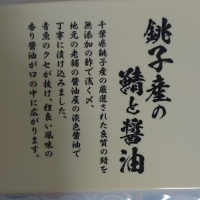 銚子産の
鯖と醤油
千葉県銚子産の厳選された良質の鯖を
無添加の酢で浅く〆、
地元の老舗の醤油屋の淡色醤油で
丁寧に漬け込みました。
青魚のクセが抜け、程良い風味の
香り醤油が口の中に広がります。